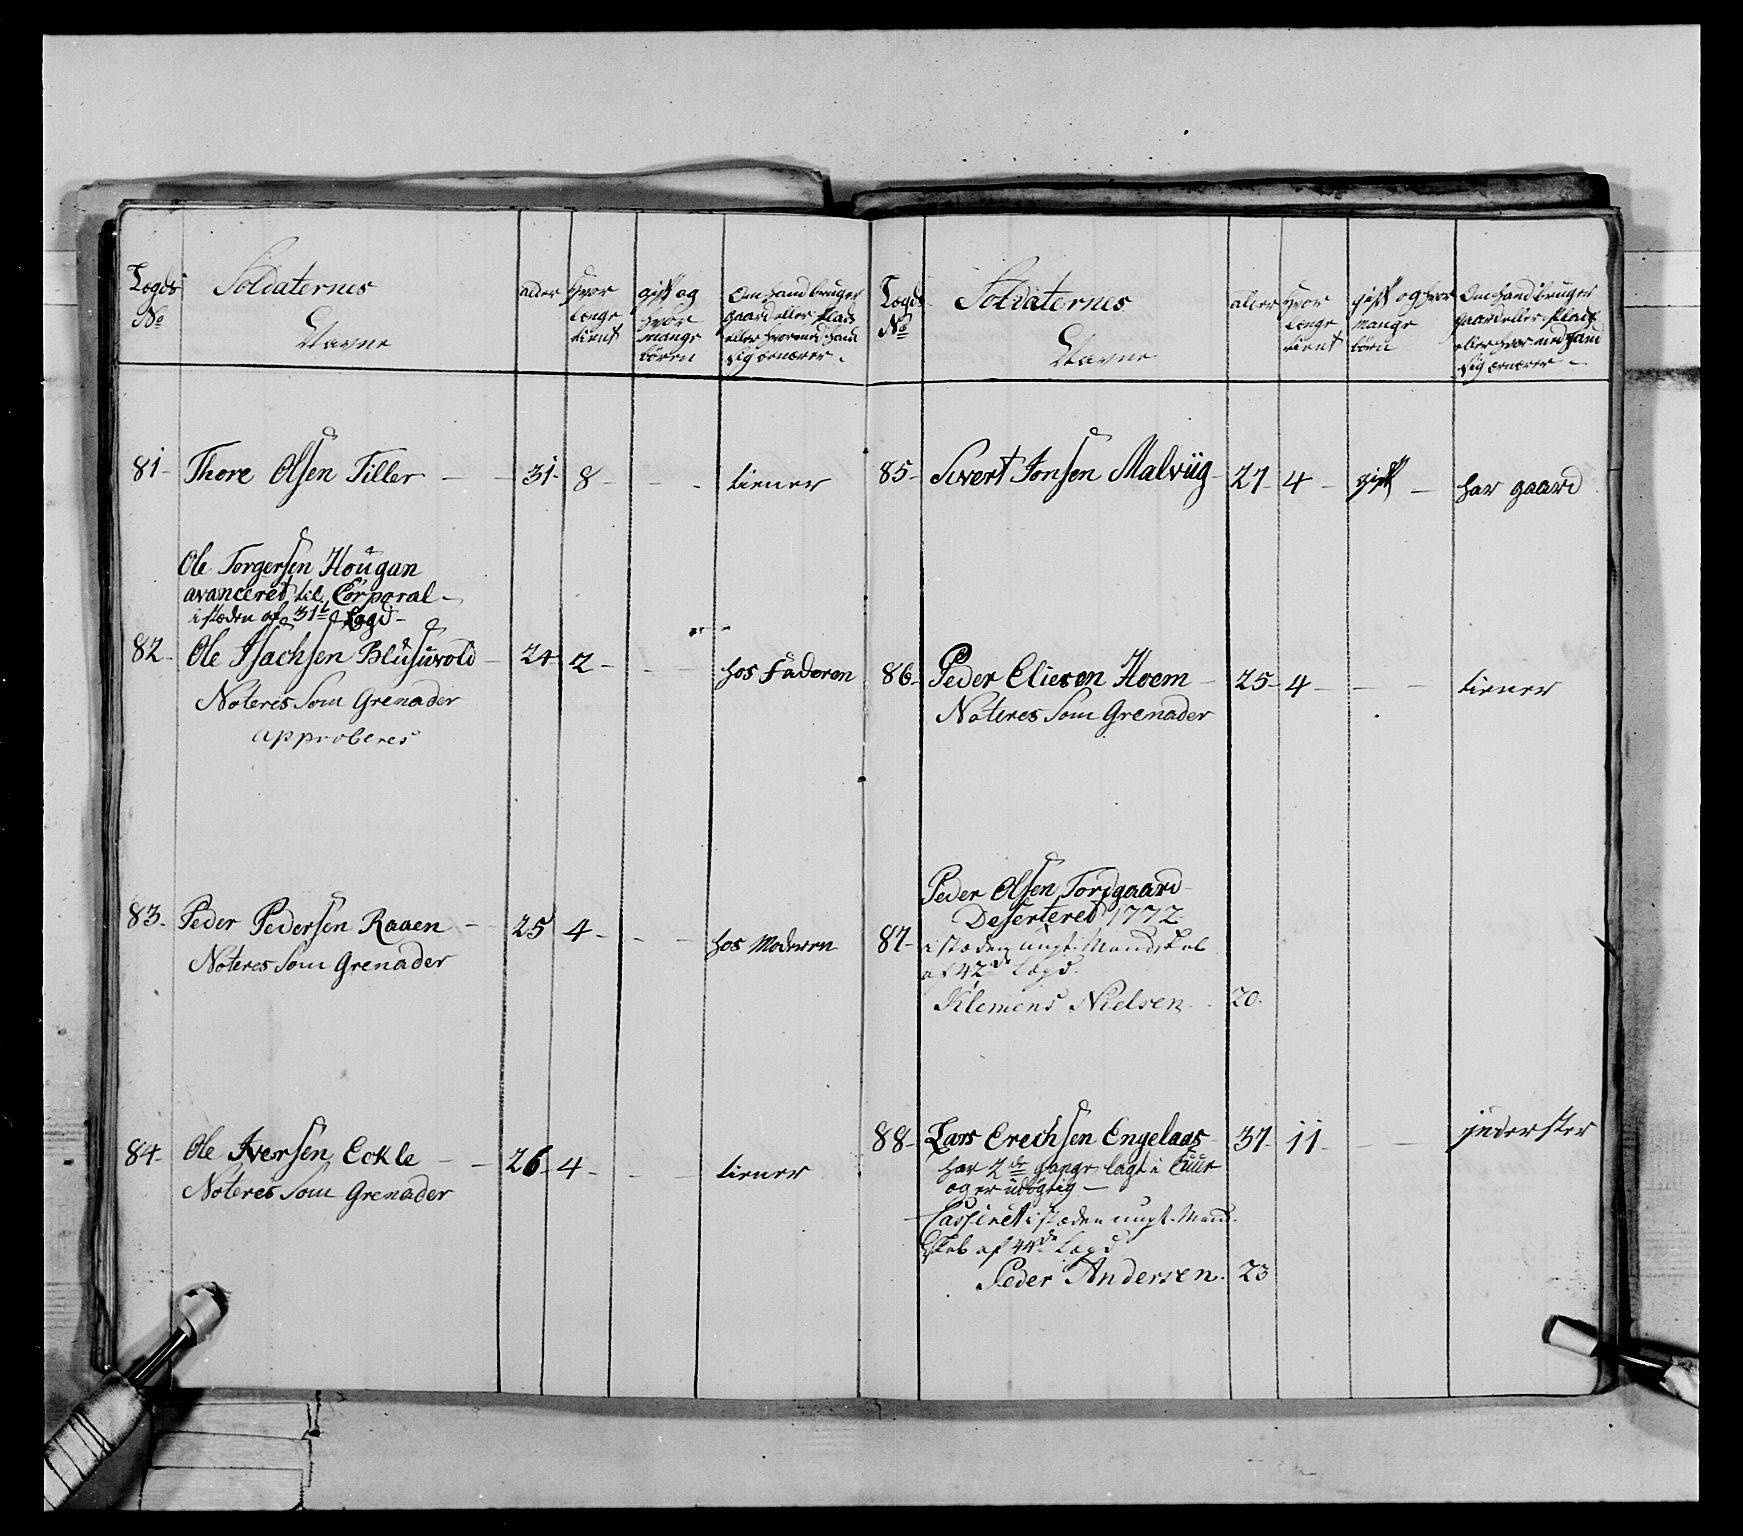 Legds
No
Soldaternes
Navne
alder
hvor
lenge
tient
gift og
hvor
mange
börn
Om hand bruger
gaard eller plads
eller hvormed hand
sig ernærer
81 Thore Olsen Tiller 31 8 - - tiener
Ole Torgersen Hougan
avanceret til Corporal
i stæden af 31te Legd
82 Ole Isachsen Blusuvold 24 2 - - hos Faderen
Noteres som Grenader
approberes
83 Peder Pedersen Raaen 25 4 - - hos Moderen
Noteres som Grenader
84 Ole Iversen Eckle 26 4 - - tiener
Noteres som Grenader
Legds
No
Soldaternes
Navne
alder
hvor
lenge
tient
gift og hvor
mange
börn
Om hand bruger
gaard eller plads
eller hvormed hand
sig ernærer
85 Sivert Jonsen Malviig 27 4 gift - har gaard
86 Peder Eliesen Hoem 25 4 - - tiener
Noteres som Grenader
Peder Olsen Torsgaard
Deserteret 1772
87 i stæden ungt Mandskab
af 42de Legd
Klemens Nielsen 20
88 Lars Erechsen Engelaas 37 11 - - inderster
har 2de gange lagt i Cuur
og er udögtig
Casseret i stæden ungt Mand
skab af 44de Legd
Peder Andersen 23